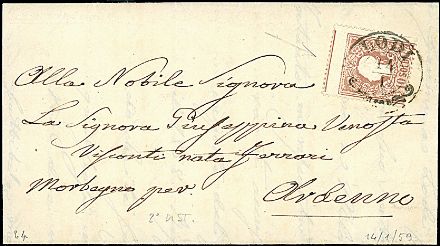 LODI
Alla Nobile Signora
La Signora Giuseppina Venosta
Visconti nata Ferrari
Morbegno per
Ardenno
2° IIST.
24
14/1/59